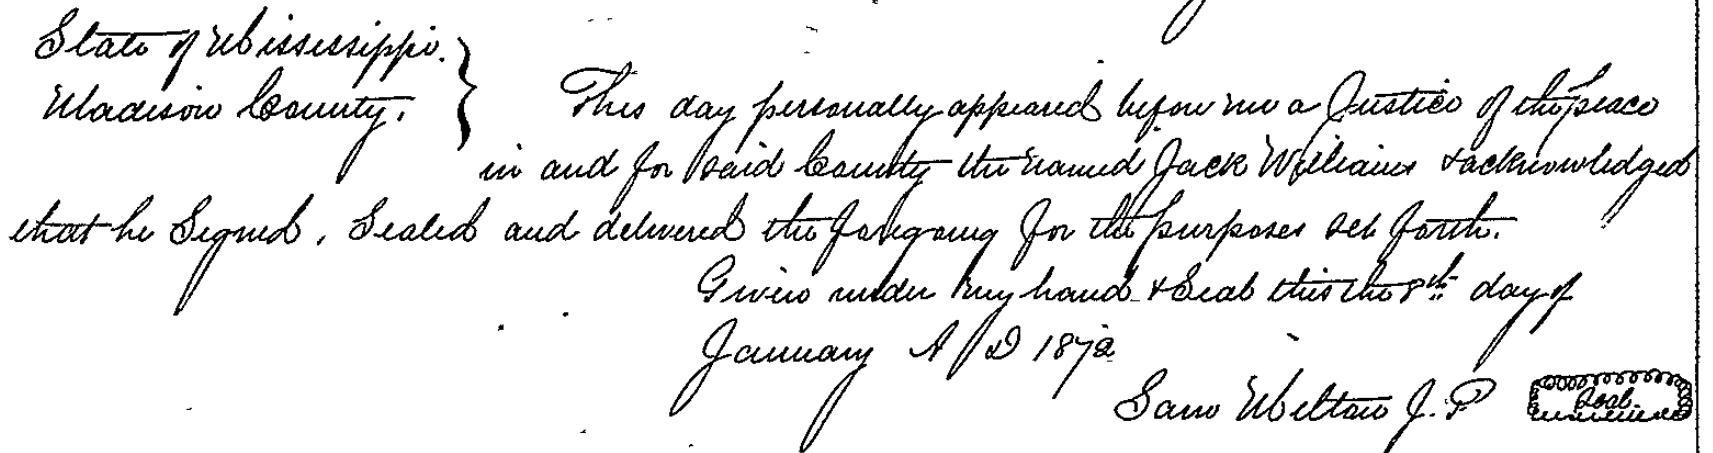 State of Mississippi.
Madison County. } This day personally appeared before me a Justice of the peace
in and for said County the named Jack Williams & acknowledged
that he Signed, Sealed and delivered the foregoing for the purposes set forth.
Given under my hand & Seal this the 8th day of
January A D 1872
Sam Melton J. P Seal